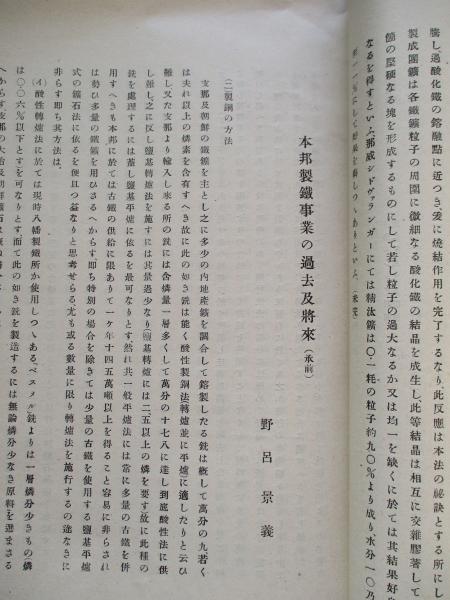 騰し、過酸化鐵の熔融點に近つき、爰に燒結作用を完了するなり、此反應は本法の祕訣とする所にし
製成團鑛は各鐵鑛粒子の周圍に微細なる酸化鐵の結晶を成生し、此等結晶は相互に交雜膠著して
箇の堅硬なる塊を形成するものにして若し粒子の過大なるか又は均一を缺くに於ては其結果好
なるを得すといふ、那威シドヴァランガーにては精汰鑛は〇・一粍の粒子約九〇%より成り、水分一〇乃
本邦製鐵事業の過去及將來(承前)
野呂景義
(二)製鋼の方法
支那及朝鮮の鐵鑛を主とし之に多少の內地產鑛を調合して熔製したる銑は概して萬分の九若く
は夫れ以上の燐素を含有すへき故に此の如き銑は能く酸性製鋼法轉爐並に平爐に適したりと云ひ
難し、又た支那より輸入し來る所の銑には含燐量一層多くして萬分の十七八に達し到底酸性法に供
し難し、之に反し鹽基轉爐法を施すには其量過少なり(鹽基轉爐には二、五以上の燐を要す)故に此種の
銑を處理するには蓋し鹽基平爐に依るを最可なりとす、然れ共一般平爐法には常に多量の古鐵を併
用すへきも本邦に於ては古鐵の供給に限ありて一ケ年十四五萬噸以上を得ること容易に非らされ
は勢ひ多量の鐵鑛を用ひさるへからす即ち特別の場合を除きては少量の古鐵を使用する鹽基平爐
式の鑛石法に依るを便且つ益なりと思考せらる、尤も或る數量に限り轉爐法を施行するの途なきに
非らす即ち其方法は、
(イ)酸性轉爐法に於ては現時八幡製鐵所か使用しつゝある、ベスメル銑よりは一層燐分少きもの燐
は〇、〇六%以下とすを可なりとす、而て此の如き銑を製造するには無論燐分少なき原料を選まさる
へからす、支那の大冶及朝鮮鑛石は